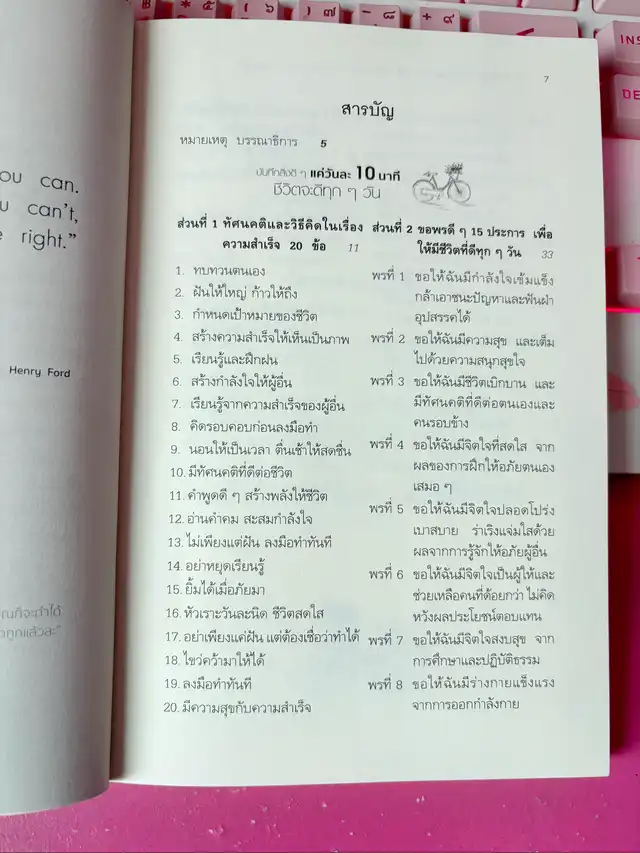 ou can.
u can't,
e right."
Henry Ford
7
สารบัญ
หมายเหตุ บรรณาธิการ 5
บันทึกสิ่งดี ๆ แค่วันละ 10 นาที
ชีวิตจะดีทุก ๆ วัน
ส่วนที่ 1 ทัศนคติและวิธีคิดในเรื่อง
ความสำเร็จ 20 ข้อ 11
1. ทบทวนตนเอง
2. ฝันให้ใหญ่ ก้าวให้ถึง
3. กำหนดเป้าหมายของชีวิต
4. สร้างความสำเร็จให้เห็นเป็นภาพ
5. เรียนรู้และฝึกฝน
6. สร้างกำลังใจให้ผู้อื่น
7. เรียนรู้จากความสำเร็จของผู้อื่น
8. คิดรอบคอบก่อนลงมือทำ
9. นอนให้เป็นเวลา ตื่นเช้าให้สดชื่น
10. มีทัศนคติที่ดีต่อชีวิต
11. คำพูดดี ๆ สร้างพลังให้ชีวิต
12. อ่านคำคม สะสมกำลังใจ
13. ไม่เพียงแต่ฝัน ลงมือทำทันที
14. อย่าหยุดเรียนรู้
15. ยิ้มได้เมื่อภัยมา
16. หัวเราะวันละนิด ชีวิตสดใส
17. อย่าเพียงแค่ฝัน แต่ต้องเชื่อว่าทำได้
18. ไขว่คว้ามาให้ได้
19. ลงมือทำทันที
20. มีความสุขกับความสำเร็จ
ส่วนที่ 2 ขอพรดี ๆ 15 ประการ เพื่อ
ให้มีชีวิตที่ดีทุก ๆ วัน 33
พรที่ 1 ขอให้ฉันมีกำลังใจเข้มแข็ง
กล้าเอาชนะปัญหาและฟันฝ่า
อุปสรรคได้
พรที่ 2 ขอให้ฉันมีความสุข และเต็ม
ไปด้วยความสนุกสุขใจ
พรที่ 3 ขอให้ฉันมีชีวิตเบิกบาน และ
มีทัศนคติที่ดีต่อตนเองและ
คนรอบข้าง
พรที่ 4 ขอให้ฉันมีจิตใจที่สดใส จาก
ผลของการฝึกให้อภัยตนเอง
เสมอ ๆ
พรที่ 5 ขอให้ฉันมีจิตใจปลอดโปร่ง
เบาสบาย ร่าเริงแจ่มใสด้วย
ผลจากการรู้จักให้อภัยผู้อื่น
พรที่ 6 ขอให้ฉันมีจิตใจเป็นผู้ให้และ
ช่วยเหลือคนที่ด้อยกว่า ไม่คิด
หวังผลประโยชน์ตอบแทน
พรที่ 7 ขอให้ฉันมีจิตใจสงบสุข จาก
การศึกษาและปฏิบัติธรรม
พรที่ 8 ขอให้ฉันมีร่างกายแข็งแรง
จากการออกกำลังกาย
INS
DE